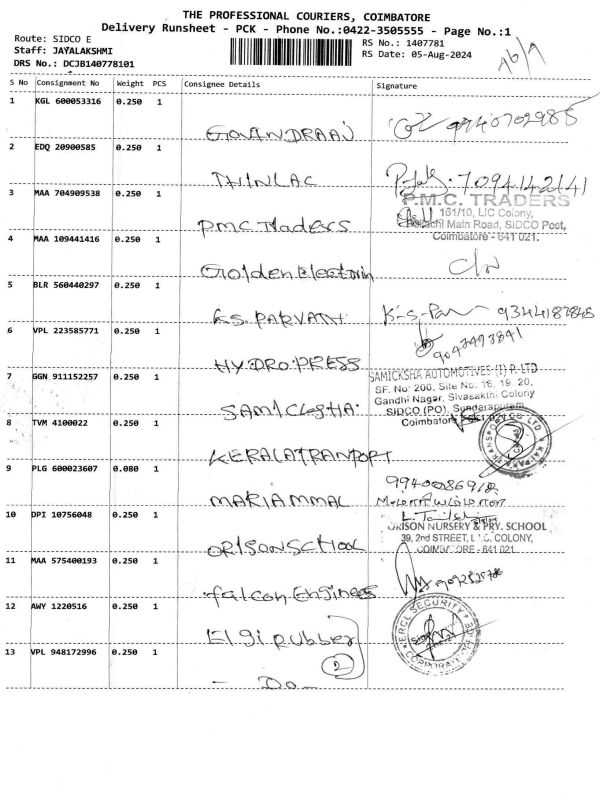 THE PROFESSIONAL COURIERS, COIMBATORE
Delivery Runsheet - PCK - Phone No.:0422-3505555 - Page No.:1
Route: SIDCO E
Staff: JAYALAKSHMI
DRS No.: DCJB140778101
RS No.: 1407781
RS Date: 05-Aug-2024
S No Consignment No Weight PCS Consignee Details Signature
1 KGL 600053316 0.250 1
GOVINDRAAJ 9940702985
2 EDQ 20900585 0.250 1
THINLAC
3 MAA 704909538 0.250 1
P.M.C. Traders
P.M.C. TRADERS
161/10, LIC Colony,
Pollachi Main Road, SIDCO Post,
Coimbatore - 641 021.
4 MAA 109441416 0.250 1
Golden Electrin
5 BLR 560440297 0.250 1
K.S. PARVATHI 9344187845
6 VPL 223585771 0.250 1
HYDRO.PRESS 9043493841
7 GGN 911152257 0.250 1
SAMICKSHA
SAMICKSHA AUTOMOTIVES (I) P. LTD
SF. No: 200, Site No: 18, 19, 20,
Gandhi Nagar, Sivasakthi Colony
SIDCO (PO), Sundarapuram
Coimbatore
8 TVM 4100022 0.250 1
KERALATRANPORT
9 PLG 600023607 0.080 1
MARIAMMAL
10 DPI 10756048 0.250 1
ORISONSCHOOL
ORISON NURSERY & PRY. SCHOOL
39, 2nd STREET, L.I.C. COLONY,
COIMBATORE - 641 021.
11 MAA 575400193 0.250 1
falcon Engines
12 AWY 1220516 0.250 1
Elgi rubber
ERCL SECURITY
CORPORATE
2
13 VPL 948172996 0.250 1
- Do -